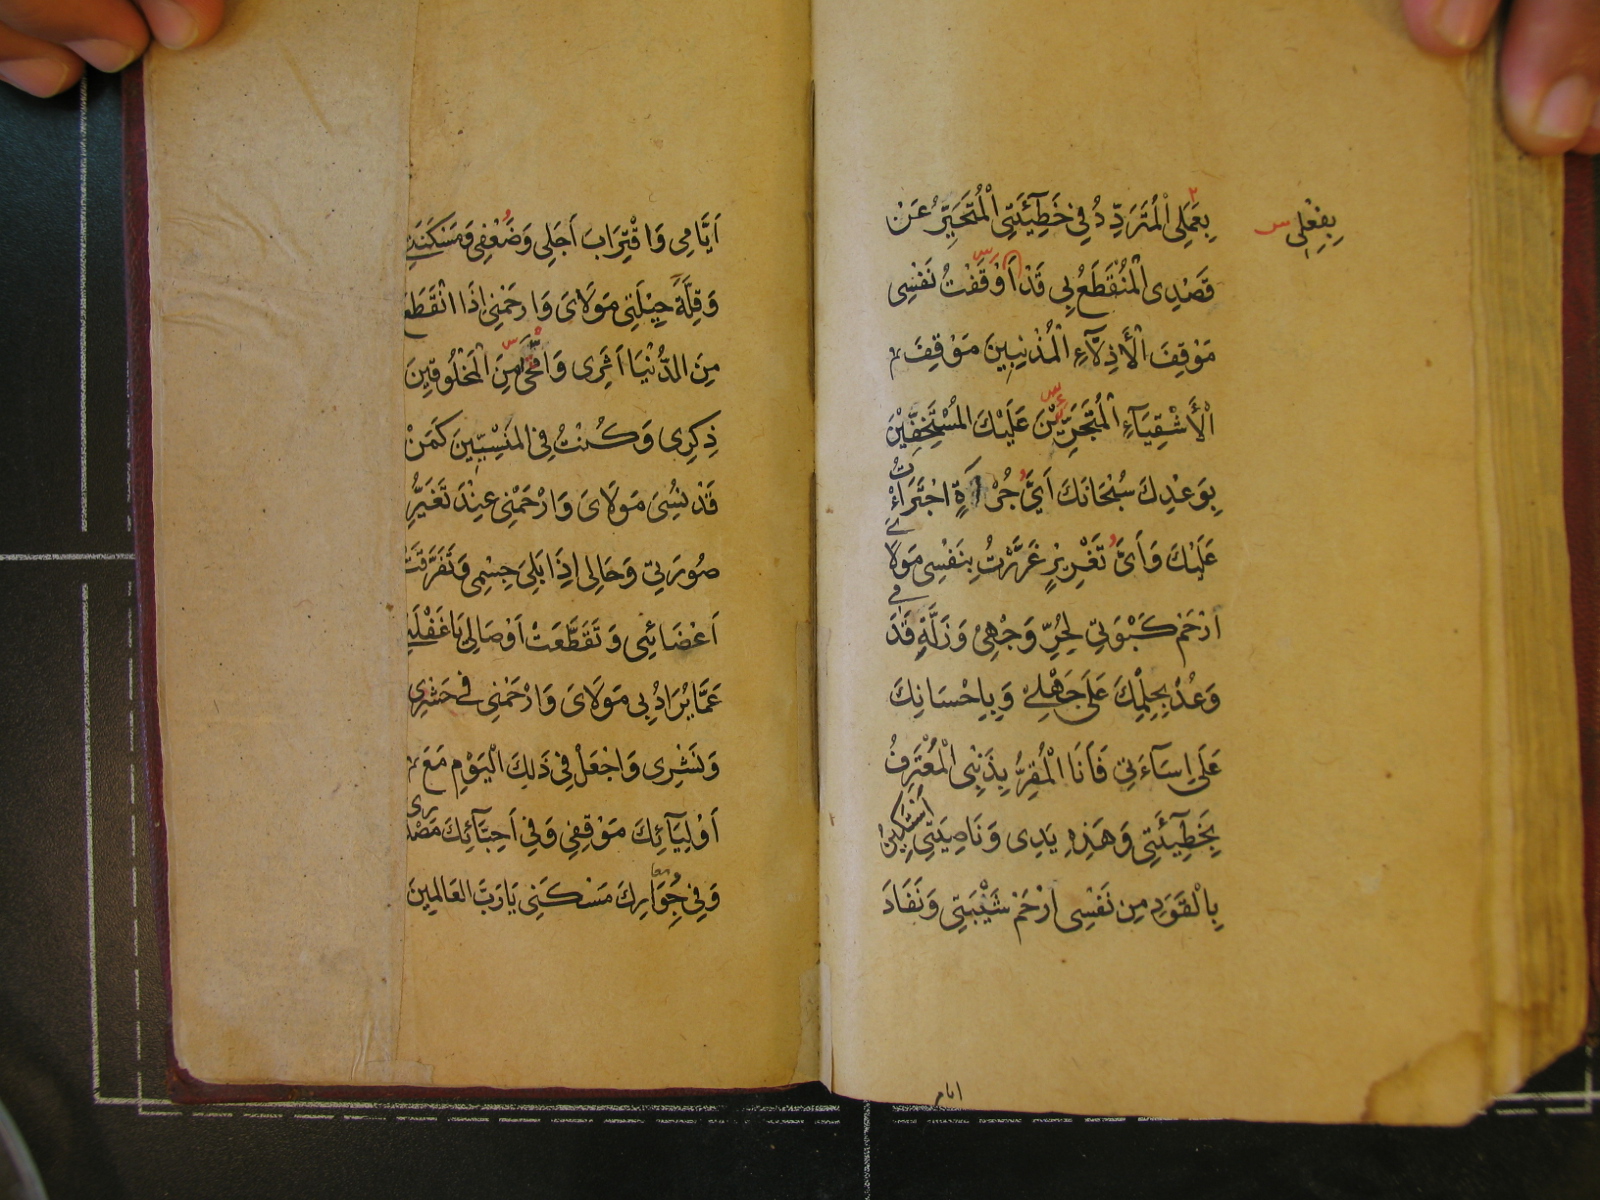 بِعَمَلِى الْمُتَرَدِّدُ فِى خَطِيۤئَتِى الْمُتَحَيِّرُ عَنْ
بِفِعْلِى س
قَصْدِى الْمُنْقَطَعُ بِى قَدْ اَوْقَفْتُ نَفْسِى
مَوْقِفَ الْاَذِلَّاۤءِ الْمُذْنِبِينَ مَوْقِفَ
الْأَشْقِيَاۤءِ الْمُتَجَرِّئِيْنَ عَلَيْكَ الْمُسْتَخِفِّيْنَ
بِوَعْدِكَ سُبْحَانَكَ اَىَّ جُرْاَةٍ اجْتَرَاْتُ
عَلَيْكَ وَاَىَّ تَغْرِيْرٍ غَرَّرْتُ بِنَفْسِى مَوْلَاىَ
اِرْحَمْ كَبْوَتِى لِحُرِّ وَجْهِى وَزَلَّةِ قَدَمِى
وَعُدْ بِحِلْمِكَ عَلَى جَهْلِى وَبِاِحْسَانِكَ
عَلَى اِسَاۤءَتِى فَاَنَا الْمُقِرُّ بِذَنْبِى الْمُعْتَرِفُ
بِخَطِيۤئَتِى وَهَذِهِ يَدِى وَنَاصِيَتِى اَسْتَكِيْنُ
بِالْقَوَدِ مِن نَفْسِى اِرْحَمْ شَيْبَتِى وَنَفَادَ
ايامى
اَيَّامِى وَاقْتِرَابَ اَجَلِى وَضَعْفِى وَمَسْكَنَتِى
وَقِلَّةَ حِيْلَتِى مَوْلَاىَ وَارْحَمْنِى اِذَا انْقَطَعَ
مِنَ الدُّنْيَا اَثَرِى وَامَّحٰى مِنَ الْمَخْلُوقِينَ
ذِكْرِى وَكُنْتُ فِى الْمَنْسِيِّينَ كَمَنْ
قَدْ نُسِىَ مَوْلَاىَ وَارْحَمْنِى عِنْدَ تَغَيُّرِ
صُورَتِى وَحَالِى اِذَا بَلِىَ جِسْمِى وَتَفَرَّقَتْ
اَعْضَائِى وَتَقَطَّعَتْ اَوْصَالِى يَا غَفْلَتِى
عَمَّا يُرَادُ بِى مَوْلَاىَ وَارْحَمْنِى فِى حَشْرِى
وَنَشْرِى وَاجْعَلْ فِى ذَلِكَ الْيَوْمِ مَعَ
اَوْلِيَاۤئِكَ مَوْقِفِى وَفِى اَحِبَّاۤئِكَ مَصْدَرِى
وَفِى جُِوَارِكَ مَسْكَنِى يَا رَبَّ الْعَالَمِينَ